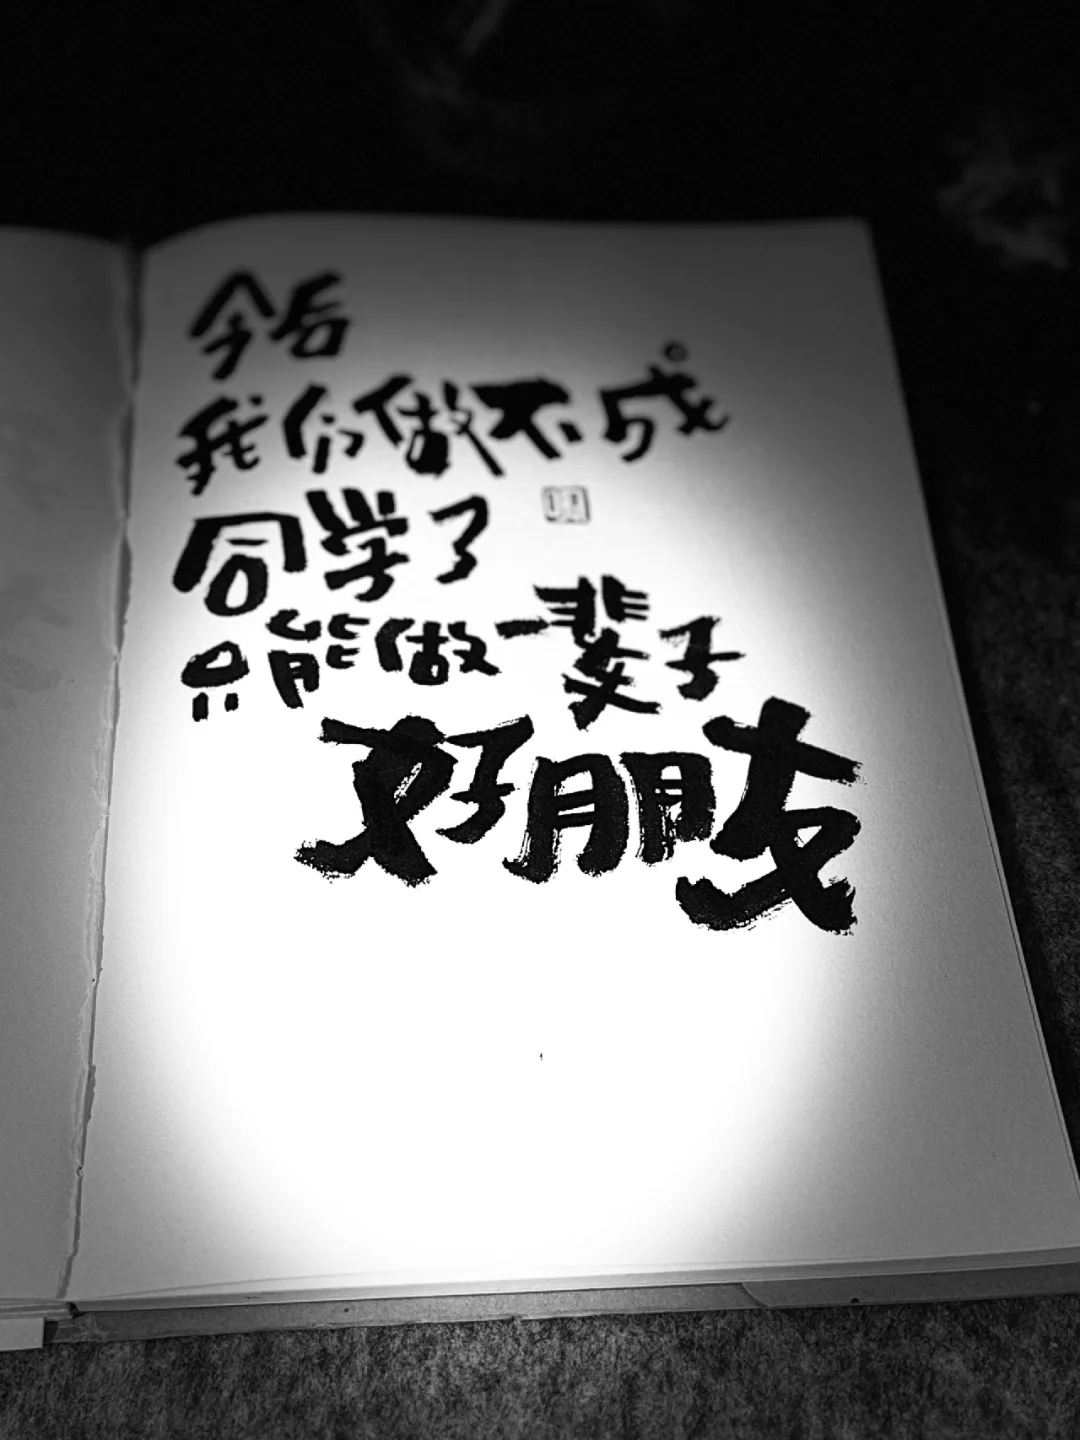 今后
我们做不成
同学了
只能做一辈子
好朋友